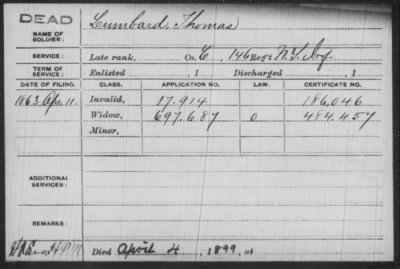 DEAD
NAME OF SOLDIER: Lumbard, Thomas
SERVICE: Late rank, Co. C, 146 Reg't N.Y. Inf.
TERM OF SERVICE: Enlisted , 1 Discharged , 1
DATE OF FILING. CLASS. APPLICATION NO. LAW. CERTIFICATE NO.
1863, Apr. 11. Invalid, 17.914 186.046
Widow, 697.687 0 484.457
Minor,
ADDITIONAL SERVICES:
REMARKS:
Died April 4, 1899, at